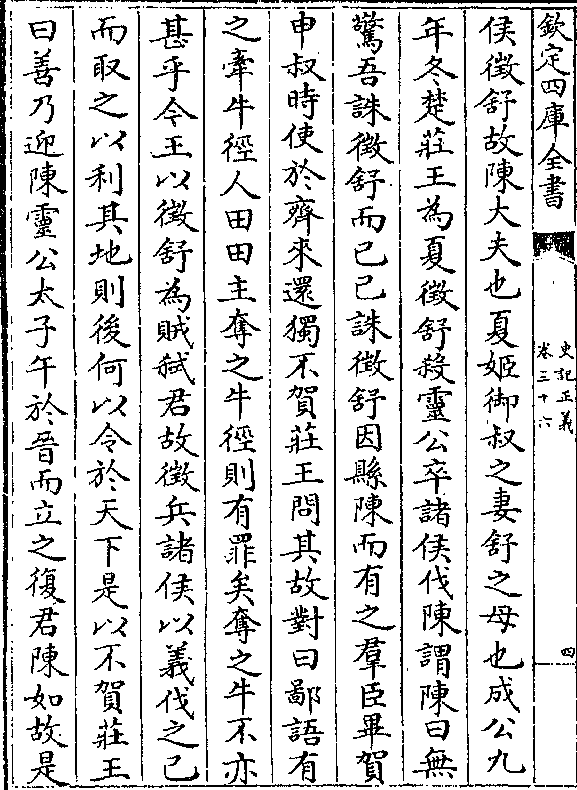 欽定四庫全書
史記正義
卷三十六
四
侯徵舒故陳大夫也夏姬御叔之妻舒之母也成公九
年冬楚莊王為夏徵舒殺靈公卒諸侯伐陳謂陳曰無
驚吾誅徵舒而已已誅徵舒因縣陳而有之羣臣畢賀
申叔時使於齊來還獨不賀莊王問其故對曰鄙語有
之牽牛徑人田田主奪之牛徑則有罪矣奪之牛不亦
甚乎今王以徵舒為賊弑君故徵兵諸侯以義伐之已
而取之以利其地則後何以令於天下是以不賀莊王
曰善乃迎陳靈公太子午於晉而立之復君陳如故是